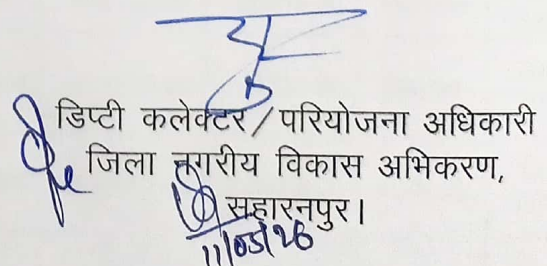 डिप्टी कलेक्टर/परियोजना अधिकारी
जिला नगरीय विकास अभिकरण,
सहारनपुर।
11/05/26